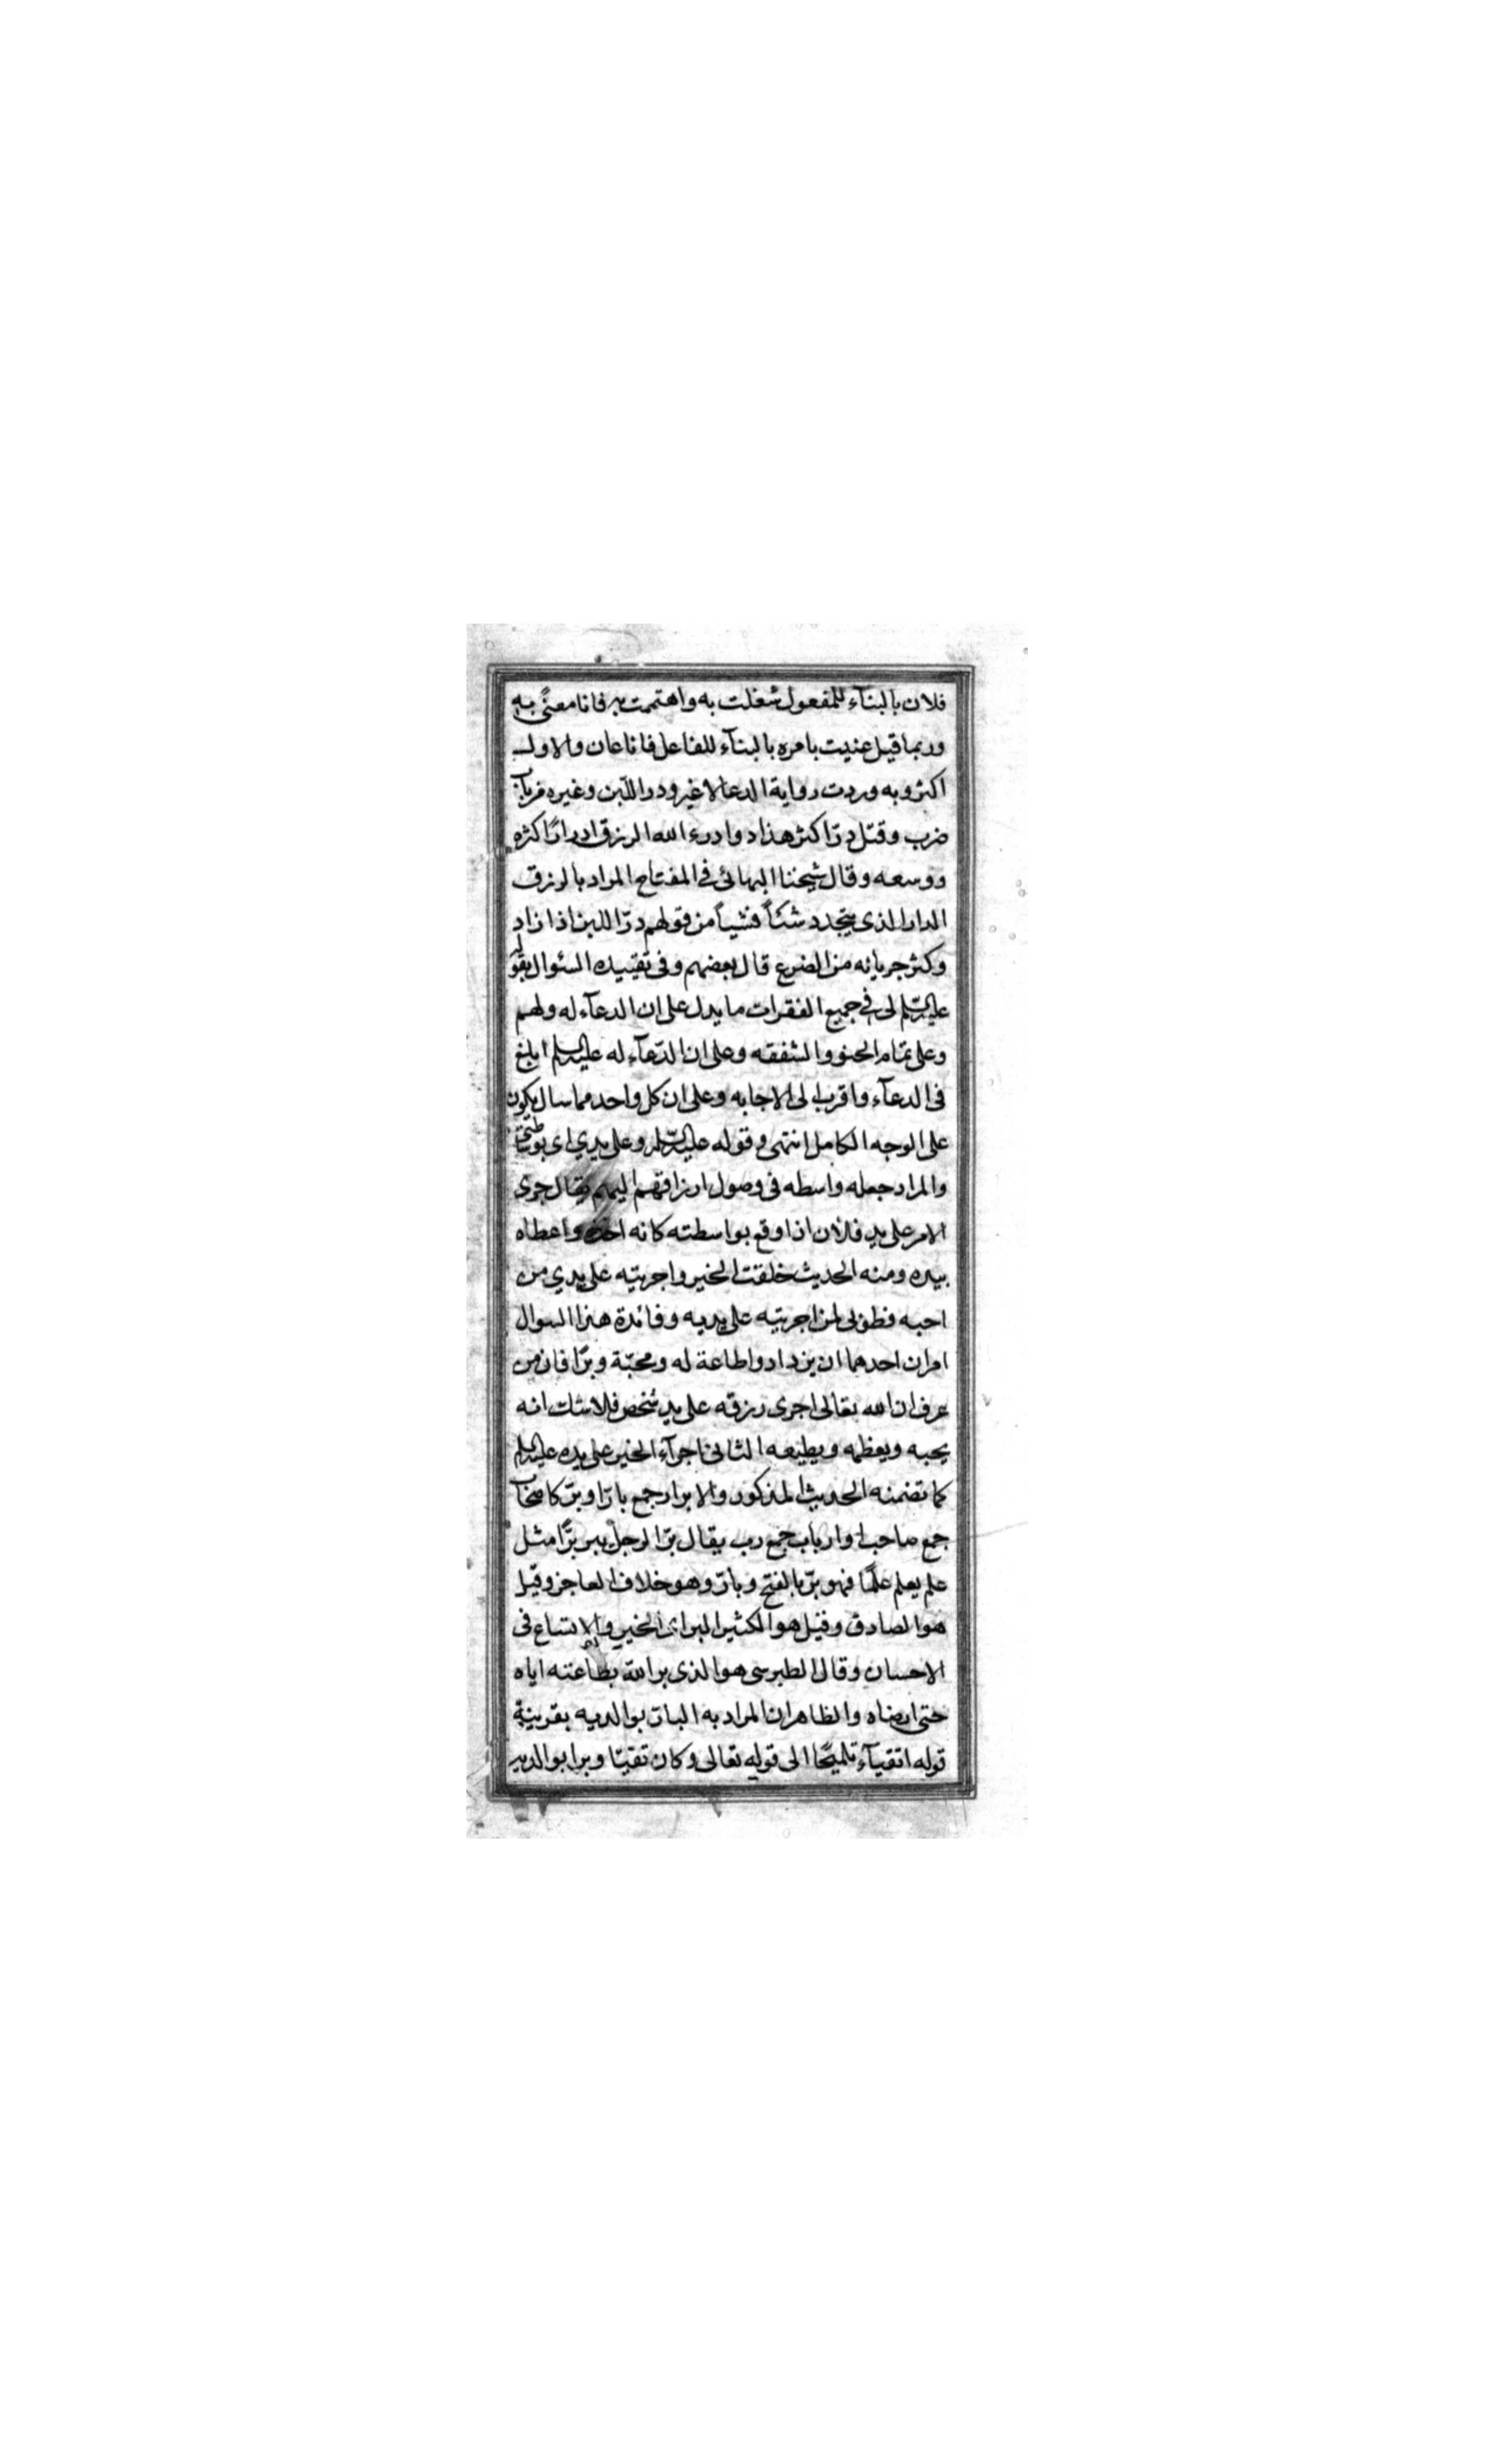 فلان بالبنآء للمفعول شغلت به واهتممت به فانا معنىً به
وربما قيل عنيت بامره بالبنآء للفاعل فانا عان والاول
اكثر وبه وردت رواية الدعا لاغير ودر اللّبن وغيره من باب
ضرب وقتل درّا كثر هذا دوادره الله الرزق ادرارًا كثره
ووسعه وقال شيخنا البهائى فى المفتاح المراد بالرزق
الدار الذى يتجدد شئاً فشياً من قولهم درّ اللبن اذا زاد
وكثر جريانه من الضرع قال بعضهم وفى تقييده السئوال بقوله
عليه السّلم لى فى جميع الفقرات ما يدل على ان الدعآء له ولهم
وعلى تمام الحنو والشفقه وعلى ان الدّعآء له عليه السلم ابلغ
فى الدعآء واقرب الى الاجابه وعلى ان كل واحد مما سال يكون
على الوجه الكامل انتهى وقوله عليه السّلم وعلى يدي اى بوساطتى
والمراد جعله واسطه فى وصول ارزاقهم اليهم يقال جرى
الامر على يد فلان اذا وقع بواسطته كانه اخذه واعطاه
بيده ومنه الحديث خلقت الخير واجريته على يدي من
احبه فطوبى لمن اجريته على يديه وفائدة هذا السوال
امران احدهما ان يزدادوا طاعة له ومحبّة وبرًا فان من
عرف ان الله تعالى اجرى رزقه على يد شخص فلا شك انه
يحبه ويعظمه ويطيعه الثانى اجرآء الخير على يده عليه السلم
كما تضمنه الحديث المذكور والابرار جمع بارّ او برّ كاصحاب
جمع صاحب او ارباب جمع رب يقال برّ الرجل يبر برًّا مثل
علم يعلم علمًا فهو برّ بالفتح وبارّ وهو خلاف العاجز وقيل
هو الصادق وقيل هو الكثير البر اى الخير والاتساع فى
الاحسان وقال الطبرسى هو الذى بر الله بطاعته اياه
حتى ارضاه والظاهر ان المراد به البارّ بوالديه بقرينة
قوله اتقيآء تلميحًا الى قوله تعالى وكان تقيّا وبرا بوالديه